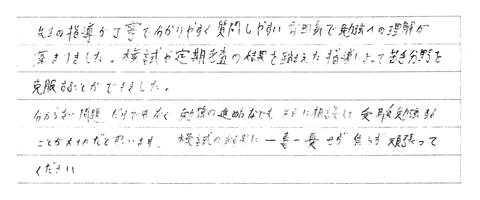 先生の指導が丁寧で分かりやすく質問しやすい雰囲気で勉強への理解が
深まりました。模試や定期考査の結果を踏まえた指導によって苦手分野を
克服することができました。
分からない問題だけでなく勉強の進め方なども 相談して 勉強する
ことが大切だと思います。模試の結果に一喜一憂せず焦らず頑張って
ください